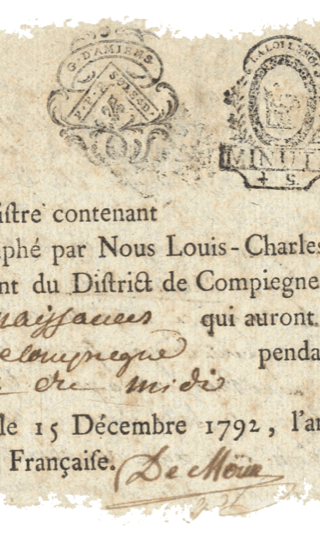 G. D'AMIENS
MINUT
4 S.
istre contenant
phé par Nous Louis-Charles
nt du District de Compiegne
naissances qui auront
Compiegne penda
du midi
le 15 Décembre 1792, l'an
Française. De Moüy